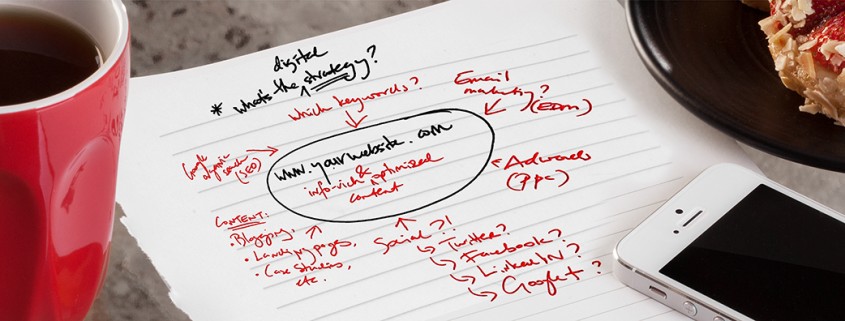 digital
* what's the strategy?
which keywords?
Email
marketing?
(EDM)
Google
organic
search
(SEO)
www.yourwebsite.com
info-rich & optimized
content
Adwords
(PPC)
CONTENT:
• Blogging,
• Landing pages,
• Case studies,
etc.
Social?!
Twitter?
Facebook?
LinkedIN?
Google+?